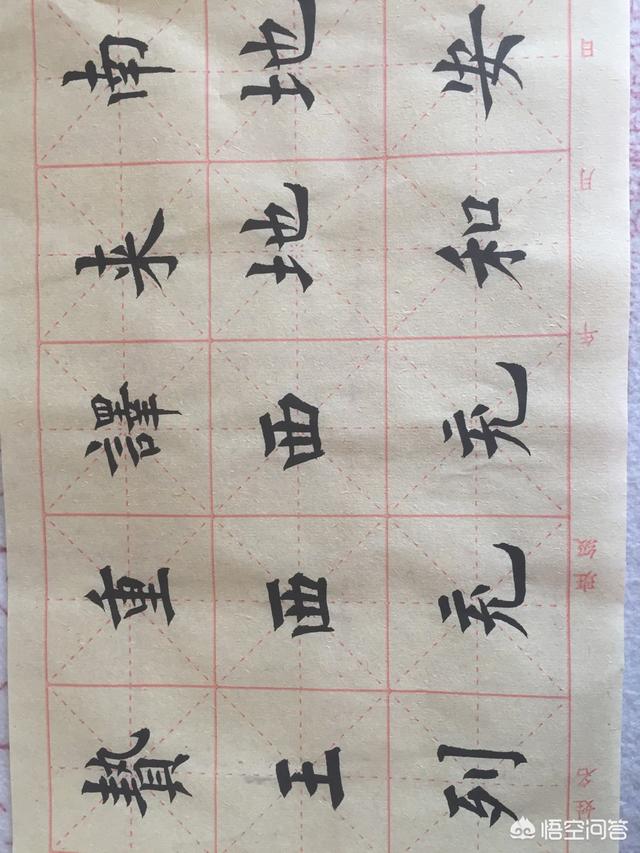 贄重譯来南
王西西地地
列充充和安
姓名 班级 年 月 日
悟空问答